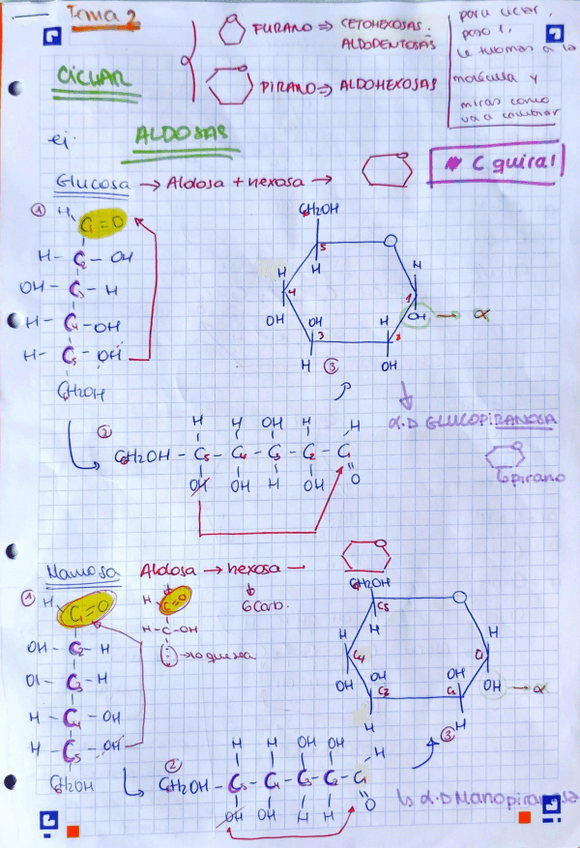 Tema 2
CICLAR
FURANO ⇒ CETOHEXOSAS.
ALDOPENTOSAS
PIRANO ⇒ ALDOHEXOSAS
para ciclar,
paso 1,
le tubmas a la
molécula y
miras como
va a cambiar
ej.
ALDOSAS
* C quiral
Glucosa → Aldosa + hexosa →
①
H
C₁=O
H- C₂ - OH
OH- C₃ - H
H- C₄ -OH
H- C₅ - OH
C₆H₂OH
C₆H₂OH
5
O
H
H
H
4
1
OH
OH
3
H
2
OH → α
H
③
OH
α-D GLUCOPIRANOSA
6pirano
②
H H OH H H
C₆H₂OH - C₅ - C₄ - C₃ - C₂ - C₁
OH OH H OH O
Manosa Aldosa → hexosa —
6Carb.
①
H
C₁=O
OH- C₂ - H
OH- C₃ - H
H- C₄ - OH
H- C₅ - OH
C₆H₂OH
H
C=O
H-C-OH
C₆H₂OH
C5
O
H
H
H
C4
C1
OH
OH
C3
OH
C2
OH → α
H
H
③
②
H H OH OH H
C₆H₂OH - C₅ - C₄ - C₃ - C₂ - C₁
OH OH H H O
↳ α-D Manopiranosa